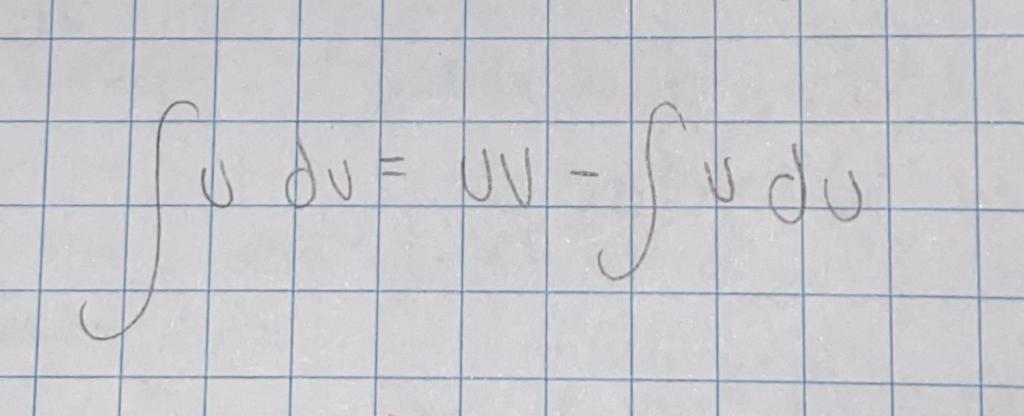 ∫ u dv = uv - ∫ v du